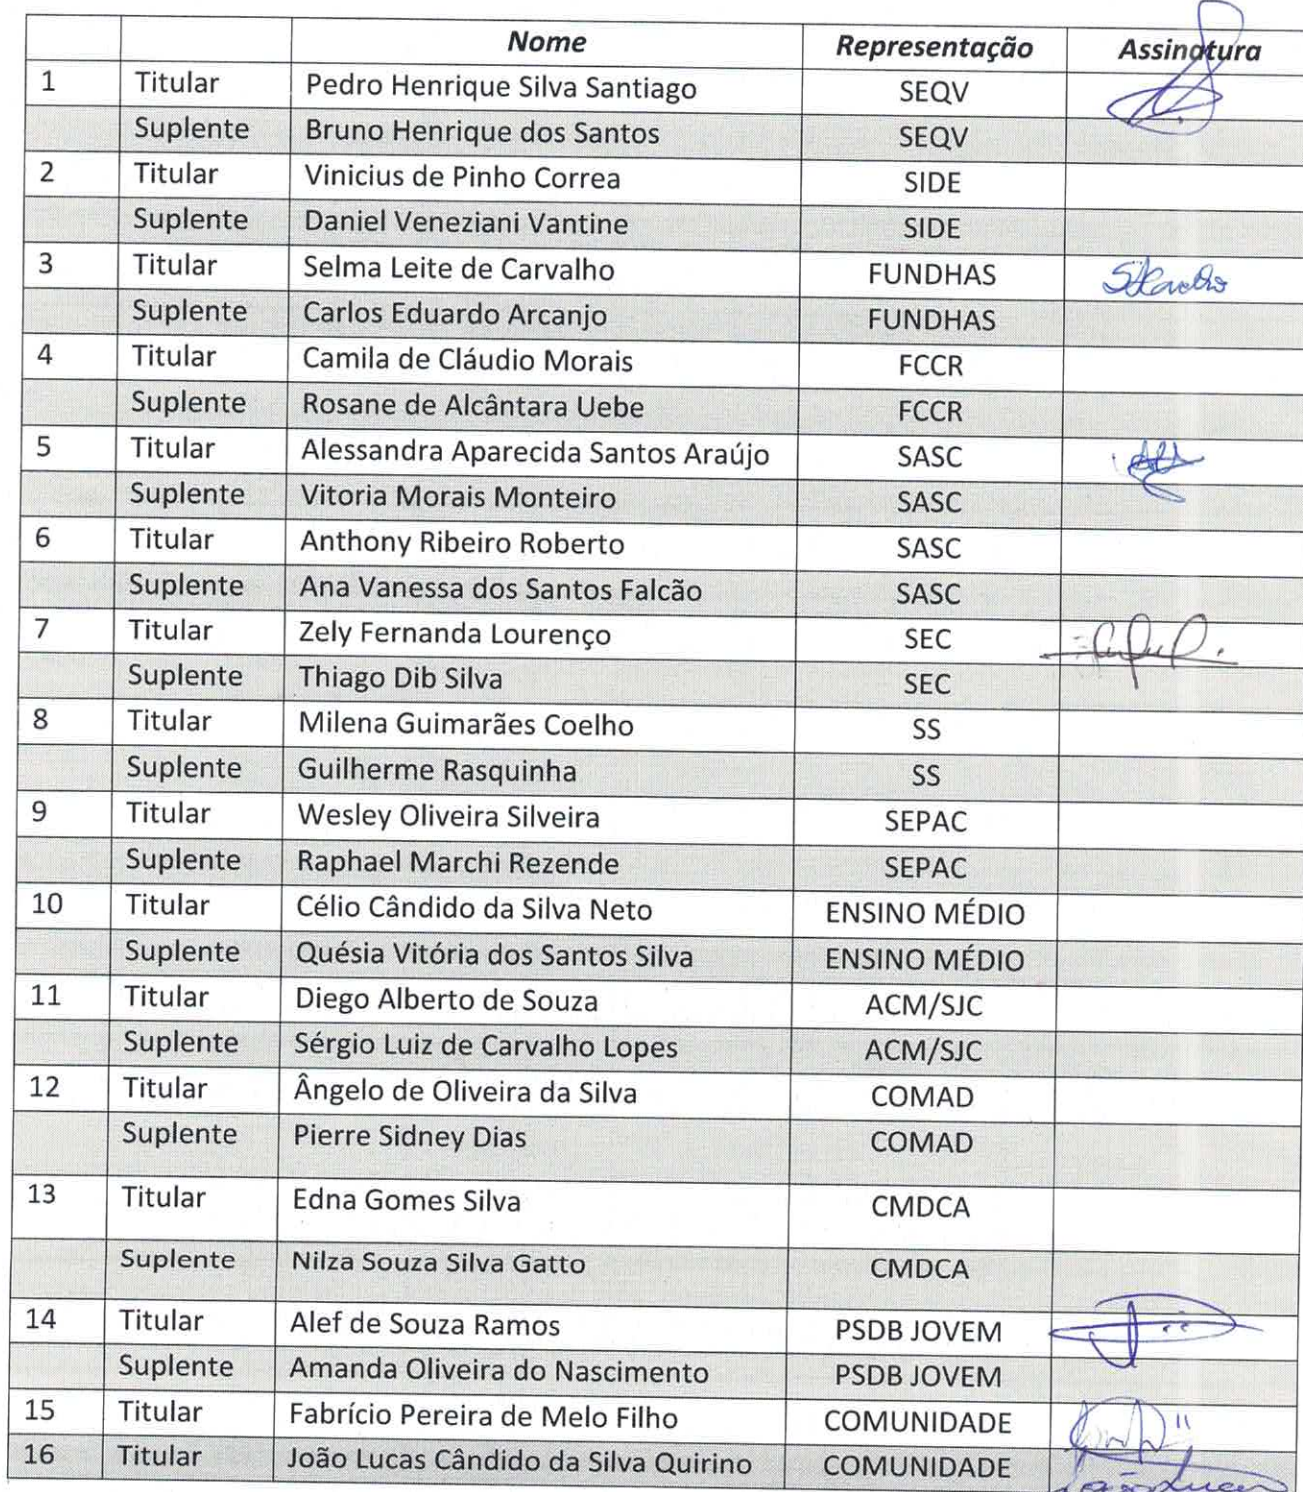 Nome Representação Assinatura
1 Titular Pedro Henrique Silva Santiago SEQV
Suplente Bruno Henrique dos Santos SEQV
2 Titular Vinicius de Pinho Correa SIDE
Suplente Daniel Veneziani Vantine SIDE
3 Titular Selma Leite de Carvalho FUNDHAS
Suplente Carlos Eduardo Arcanjo FUNDHAS
4 Titular Camila de Cláudio Morais FCCR
Suplente Rosane de Alcântara Uebe FCCR
5 Titular Alessandra Aparecida Santos Araújo SASC
Suplente Vitoria Morais Monteiro SASC
6 Titular Anthony Ribeiro Roberto SASC
Suplente Ana Vanessa dos Santos Falcão SASC
7 Titular Zely Fernanda Lourenço SEC
Suplente Thiago Dib Silva SEC
8 Titular Milena Guimarães Coelho SS
Suplente Guilherme Rasquinha SS
9 Titular Wesley Oliveira Silveira SEPAC
Suplente Raphael Marchi Rezende SEPAC
10 Titular Célio Cândido da Silva Neto ENSINO MÉDIO
Suplente Quésia Vitória dos Santos Silva ENSINO MÉDIO
11 Titular Diego Alberto de Souza ACM/SJC
Suplente Sérgio Luiz de Carvalho Lopes ACM/SJC
12 Titular Ângelo de Oliveira da Silva COMAD
Suplente Pierre Sidney Dias COMAD
13 Titular Edna Gomes Silva CMDCA
Suplente Nilza Souza Silva Gatto CMDCA
14 Titular Alef de Souza Ramos PSDB JOVEM
Suplente Amanda Oliveira do Nascimento PSDB JOVEM
15 Titular Fabrício Pereira de Melo Filho COMUNIDADE
16 Titular João Lucas Cândido da Silva Quirino COMUNIDADE